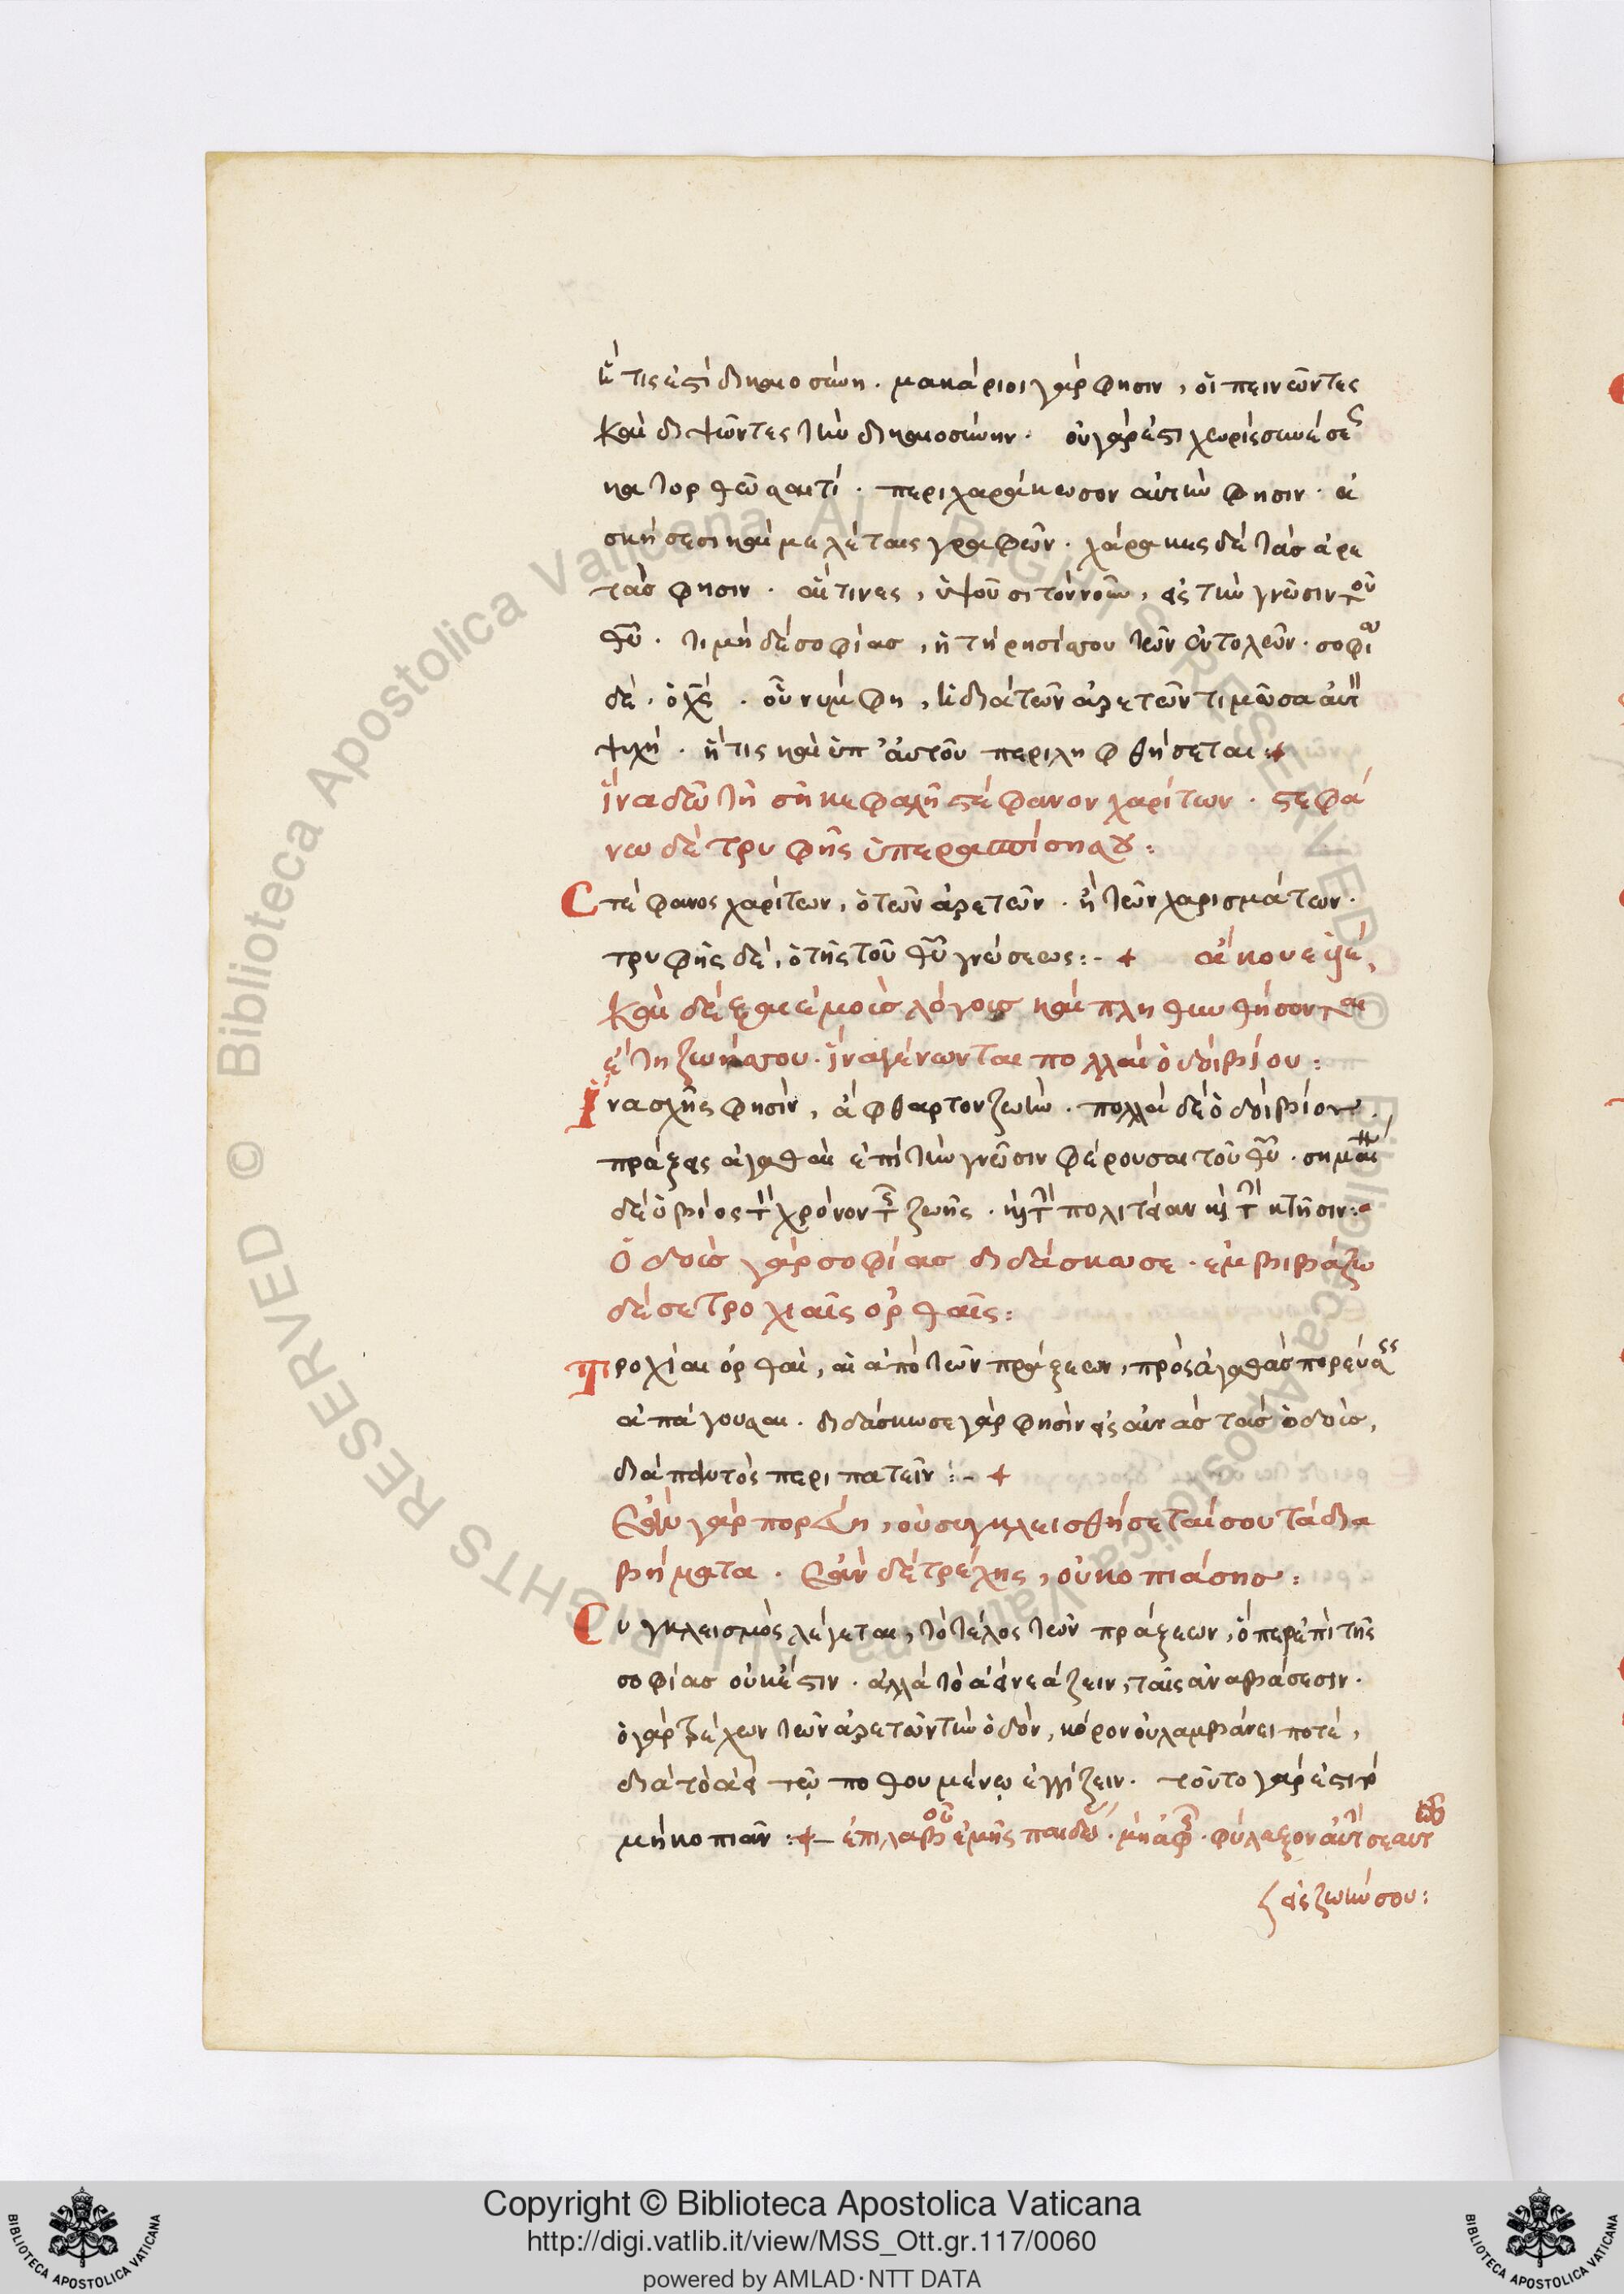 ἥ τις ἐστὶ δικαιοσύνη. μακάριοι γάρ φησιν, οἱ πεινῶντες
καὶ διψῶντες τὴν δικαιοσύνην. οὐ γάρ ἐστι χωρὶς συνέσεως
κατορθῶσαι τί. περιχαράκωσον αὐτὴν φησίν. ἀ
σκήσεσι καὶ μελέταις γραφῶν. χάρακας δὲ τὰς ἀρε
τάς φησιν. αἵτινες, ὑψοῦσι τὸν νοῦν, εἰς τὴν γνῶσιν τοῦ
θυ. τιμὴ δὲ σοφίας, ἡ τήρησις τῶν ἐντολῶν. σοφία
δὲ, ὁ χς. οὗ νύμφη, ἡ διὰ τῶν ἀρετῶν τιμῶσα αὐτὴν
ψυχή. ἥτις καὶ ὑπ' αὐτοῦ περιληφθήσεται:
ἵνα δῶ τῇ σῇ κεφαλῇ στέφανον χαρίτων. στεφά
νω δὲ τρυφῆς ὑπερασπίση σου:
Στέφανος χαρίτων, ὁ τῶν ἀρετῶν. ἢ τῶν χαρισμάτων.
τρυφῆς δὲ, ὁ τῆς τοῦ θυ γνώσεως:- ἄκουε υἱὲ,
καὶ δέξαι ἐμοὺς λόγους καὶ πληθυνθήσονται
ἔτη ζωῆς σου. ἵνα γένωνται πολλαὶ ὁδοὶ βίου:
Ἵνα σχῇς φησίν, ἄφθαρτον ζωήν. πολλαὶ δὲ ὁδοὶ βίου.
πράξεις ἀγαθαὶ ἐπὶ τὴν γνῶσιν φέρουσαι τοῦ θυ. σημαίνει
δὲ ὁ βίος τὸν χρόνον τῆς ζωῆς. καὶ τὴν πολιτείαν καὶ τὴν κτῆσιν:
Ὁδοὺς γὰρ σοφίας διδάσκω σε. ἐμβιβάζω
δέ σε τροχιαῖς ὀρθαῖς:
Τροχιαὶ ὀρθαὶ, αἱ ἀπὸ τῶν πράξεων, πρὸς ἀγαθὰς πορείας
ἀπάγουσαι. διδάσκω σε γάρ φησιν εἰς αὐτὰς τὰς ὁδοὺς,
διὰ παντὸς περιπατεῖν:-
Ἐὰν γὰρ πορεύῃ, οὐ συγκλεισθήσεταί σου τὰ δια
βήματα. Ἐὰν δὲ τρέχης, οὐ κοπιάσης:
Συγκλεισμὸς λέγεται, τὸ τέλος τῶν πράξεων, ὅπερ ἐπὶ τῆς
σοφίας οὐκ ἔστιν. ἀλλὰ τὸ ἀεὶ νεάζειν, ταῖς ἀναβάσεσιν.
ὁ γὰρ τρέχων τῶν ἀρετῶν τὴν ὁδὸν, κόρον οὐ λαμβάνει ποτέ,
διὰ τὸ ἀεὶ τῷ ποθουμένῳ ἐγγίζειν. τοῦτο γάρ ἐστι τὸ
μὴ κοπιᾶν:- ἐπιλαβοῦ ἐμῆς παιδείας. μὴ ἀφῇς. φύλαξον αὐτὴν σεαυτῷ
εἰς ζωήν σου:
Copyright © Biblioteca Apostolica Vaticana
http://digi.vatlib.it/view/MSS_Ott.gr.117/0060
powered by AMLAD·NTT DATA